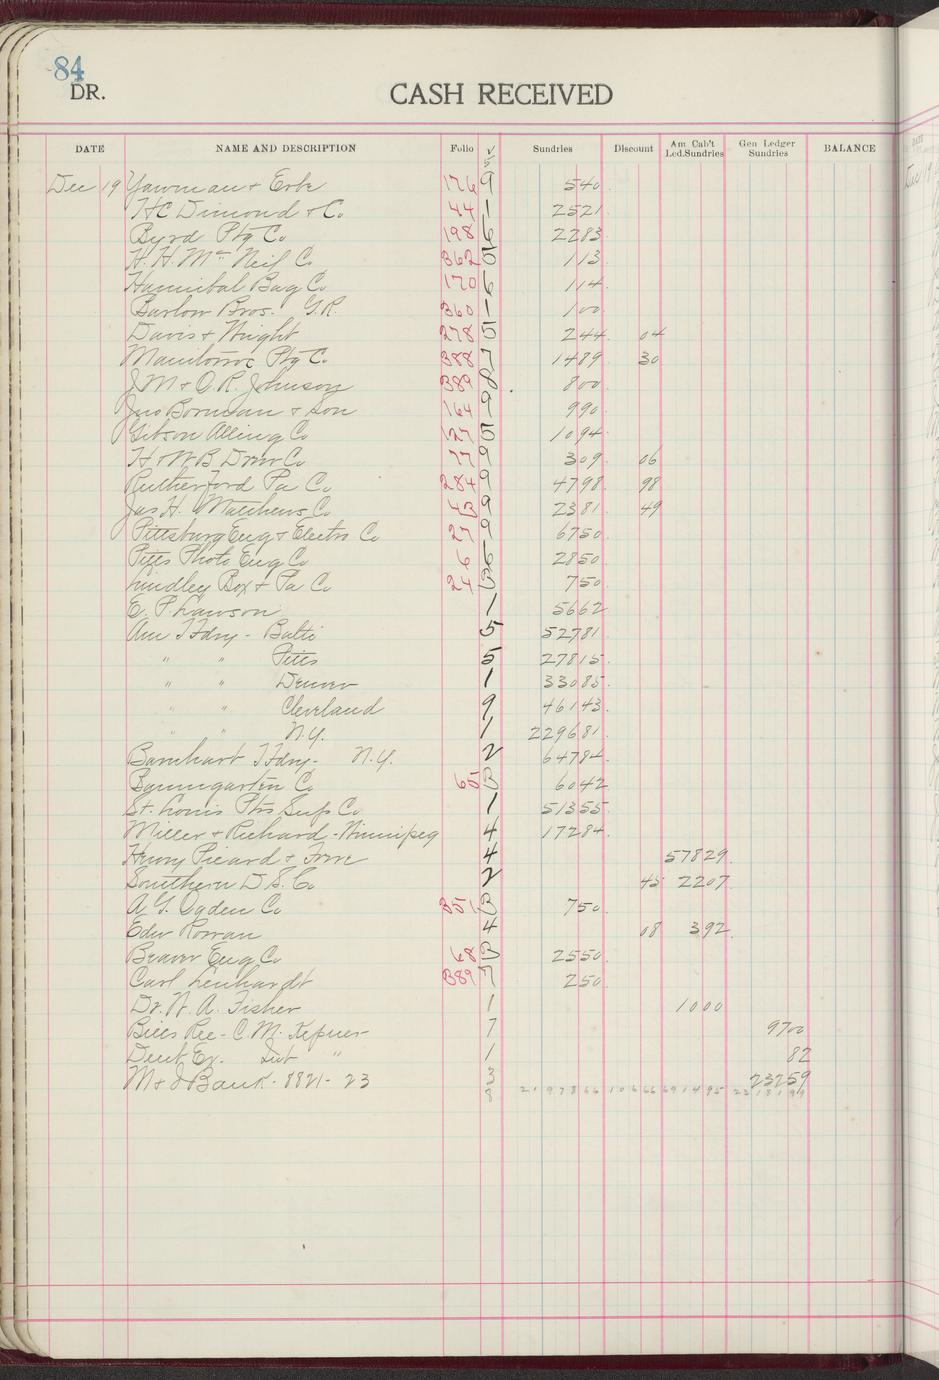 84
DR.
CASH RECEIVED
DATE NAME AND DESCRIPTION Folio Sundries Discount Am Cab't Led.Sundries Gen Ledger Sundries BALANCE
Dec 19 Yawman & Erbe 176 9 540
H C Dimond & Co 44 1 2521
Byrd Ptg Co 198 6 2283
H. H. McNeil Co 362 5 113
Hannibal Bag Co 170 6 114
Barlow Bros. G.R. 360 1 100
Davis & Wright 278 5 244 04
Manitowoc Ptg Co 388 7 1489 30
J M & C. R. Johnson 389 8 800
Jno Bornman & Son 164 9 990
Gibson Alling Co 127 5 1094
H & W B Drew Co 77 9 309 06
Rutherford Pa Co 284 9 4798 98
Jas H. Matthews Co 43 9 2381 49
Pittsburg Eng & Electro Co 27 9 6750
Pitts Photo Eng Co 6 6 2850
Lindley Box & Pa Co 24 3 750
E. P. Lawson 1 5662
Am T Fdry - Balti 5 52781
" " Pitts 5 27815
" " Denver 1 33085
" " Cleveland 9 46143
" " N.Y. 1 229681
Barnhart T Fdry - N.Y. 2 64784
Baumgarten Co 65 3 6042
St. Louis Ptrs Sup Co 1 51355
Miller & Richard - Winnipeg 4 17284
Henry Picard & Frere 4 57829
Southern D. S. Co 2 45 2207
A. G. Ogden Co 351 3 750
Edw Rowan 4 08 392
Beaver Eng Co 68 3 2550
Carl Lenhardt 389 7 250
Dr. W. A. Fisher 1 1000
Bills Rec - C. M. Kepner 7 9700
Int " 1 82
M & I Bank - 8821 - 23 3 23259
8 21 978 66 106 66 691 495